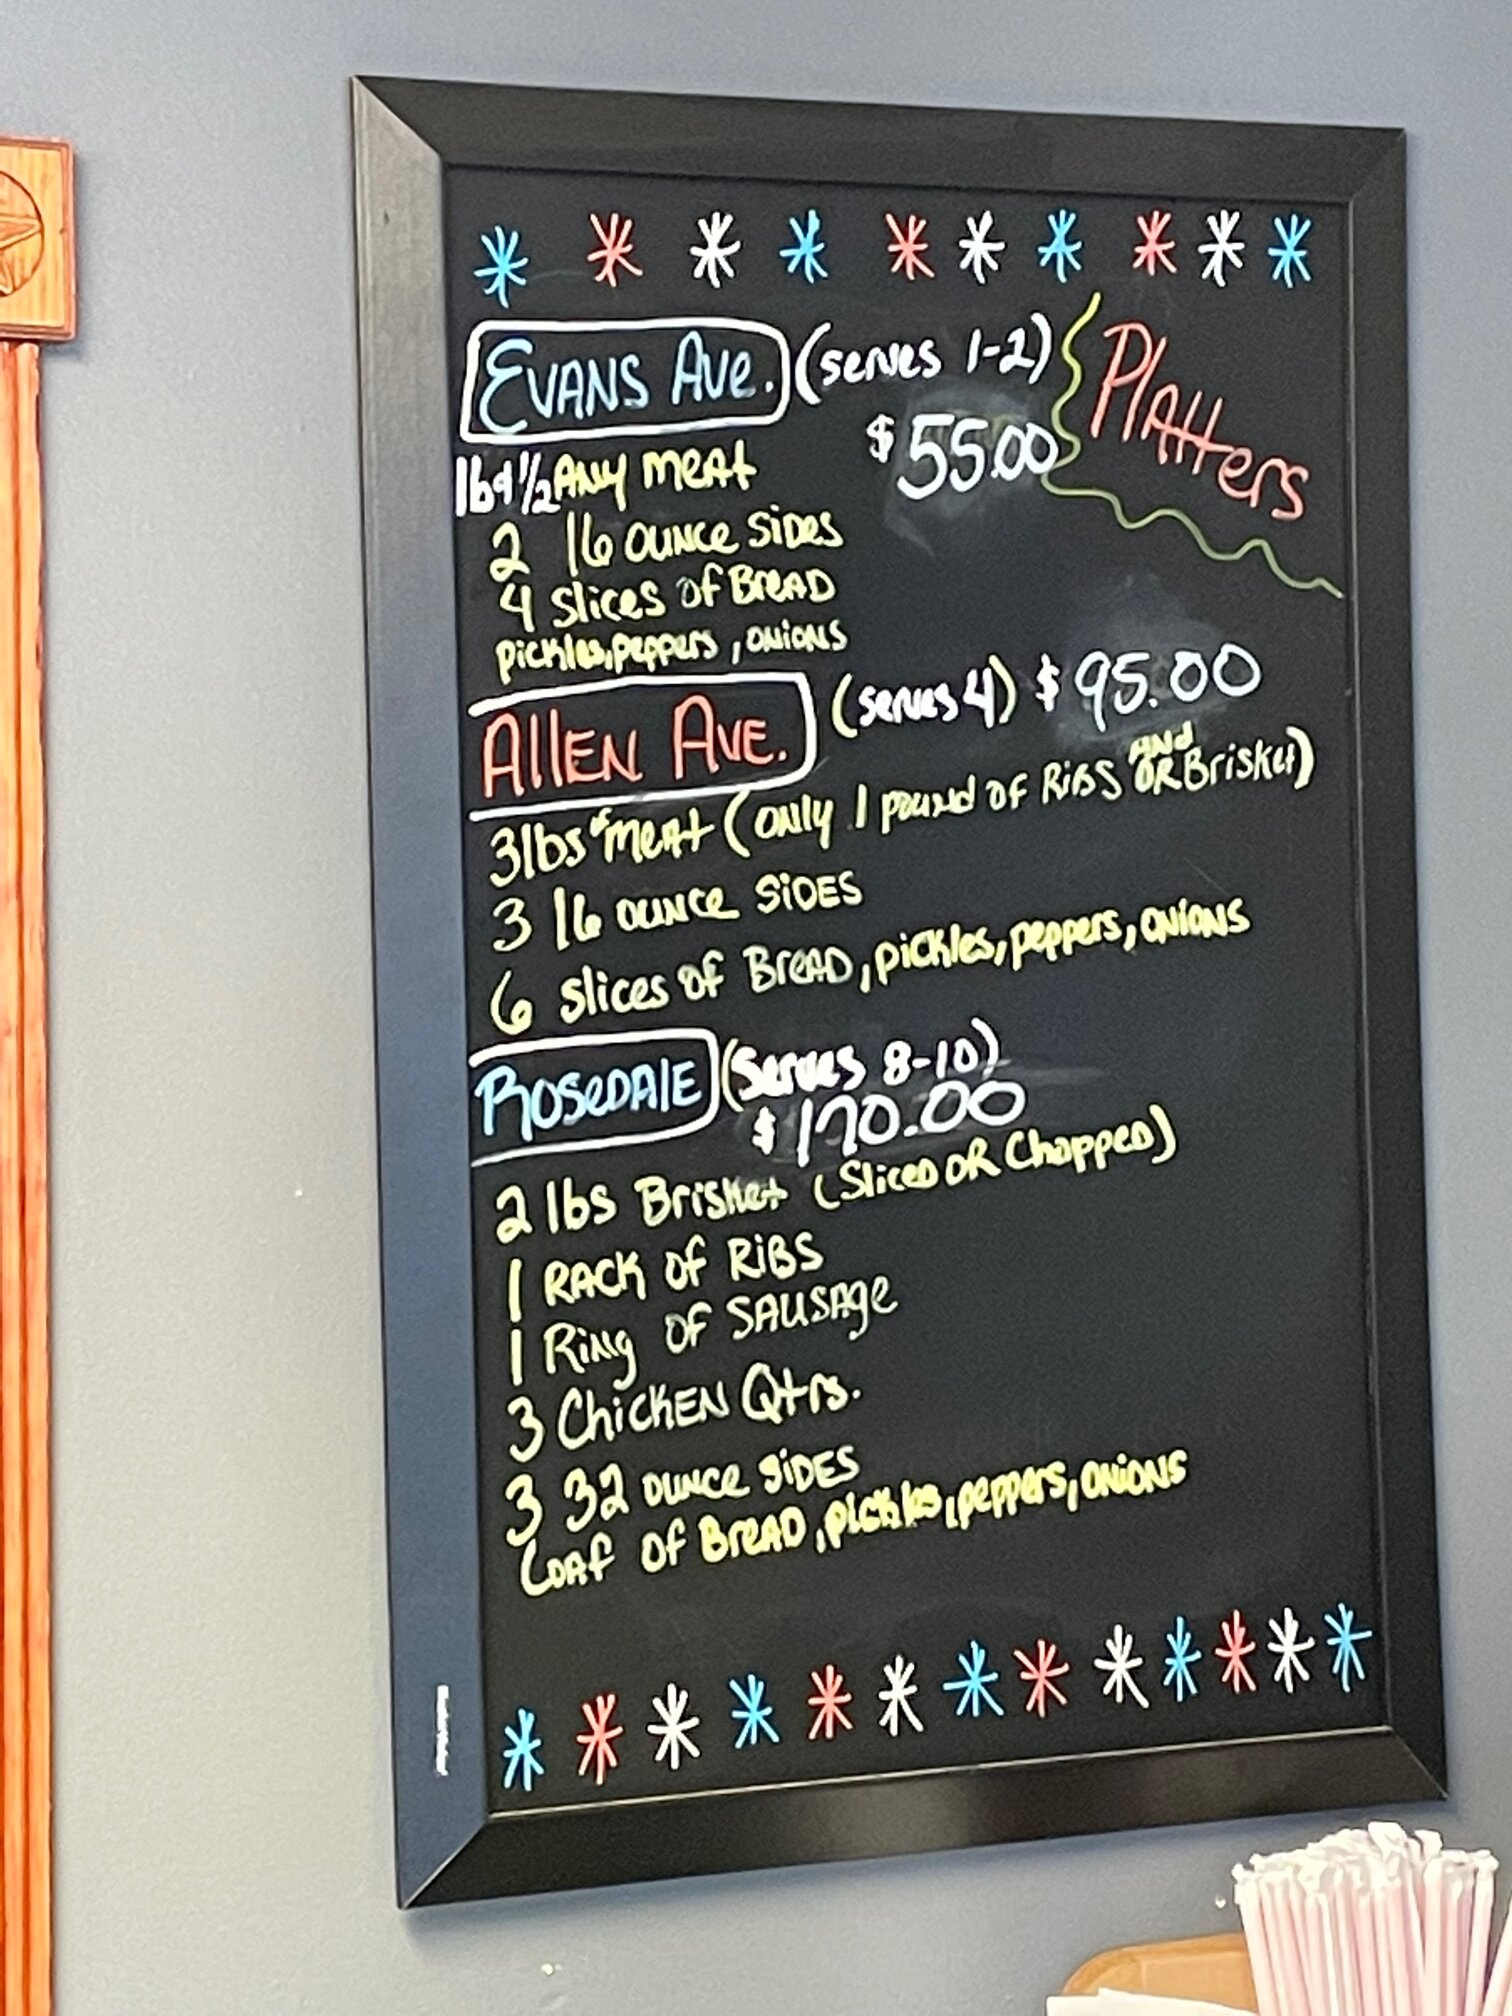 Evans Ave. (serves 1-2)
Platters
$55.00
1lb & 1/2 Any meat
2 16 ounce sides
4 slices of Bread
pickles, peppers, onions
Allen Ave. (serves 4) $95.00
3lbs of meat (only 1 pound of Ribs and OR Brisket)
3 16 ounce sides
6 slices of Bread, pickles, peppers, onions
Rosedale (Serves 8-10)
$170.00
2 lbs Brisket (Sliced OR Chopped)
1 Rack of Ribs
1 Ring of Sausage
3 Chicken Qtrs.
3 32 ounce sides
Loaf of Bread, pickles, peppers, onions